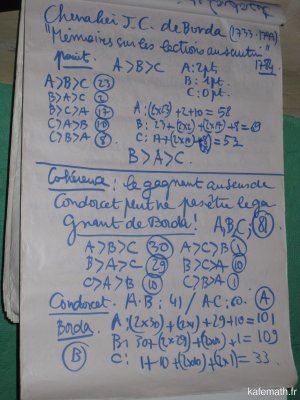 Chevalier J.C. de Borda (1733-1799)
"Mémoires sur les élections au scrutin"
1784
A>B>C A: 2pt.
B: 1pt.
C: 0pt.
A>B>C 23
B>A>C 2
B>C>A 17
C>A>B 10
C>B>A 8
A: (2x23)+2+10=58
B: 23+(2x2)+(2x17)+8=69
B>A>C.
Cohérence: le gagnant au sens de
Condorcet peut ne pas être le ga
gnant de Borda! A,B,C, 81
A>B>C 30 A>C>B 1
B>A>C 29 B>C>A 10
C>A>B 10 C>B>A 1
Condorcet. A.B: 41 / A.C: 60. A
Borda. A: (2x30)+(2x1)+29+10=101
B: 30+(2x29)+(2x10)+1=109
B
C: 1+10+(2x10)+(2x1)=33.
kafemath.fr